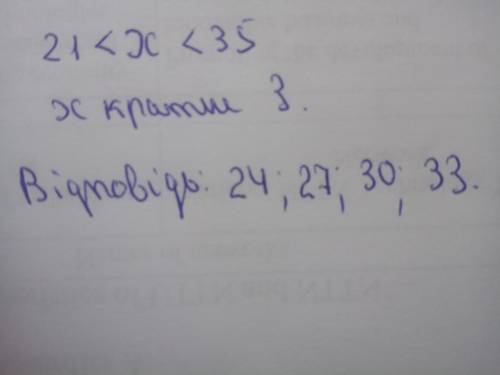 21 < x < 35
x кратне 3.
Відповідь: 24; 27; 30; 33.